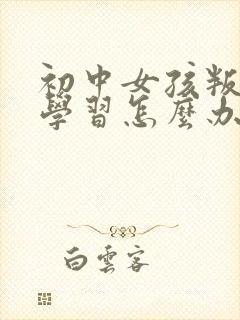 初中女孩叛
學習怎麼办
白雲客